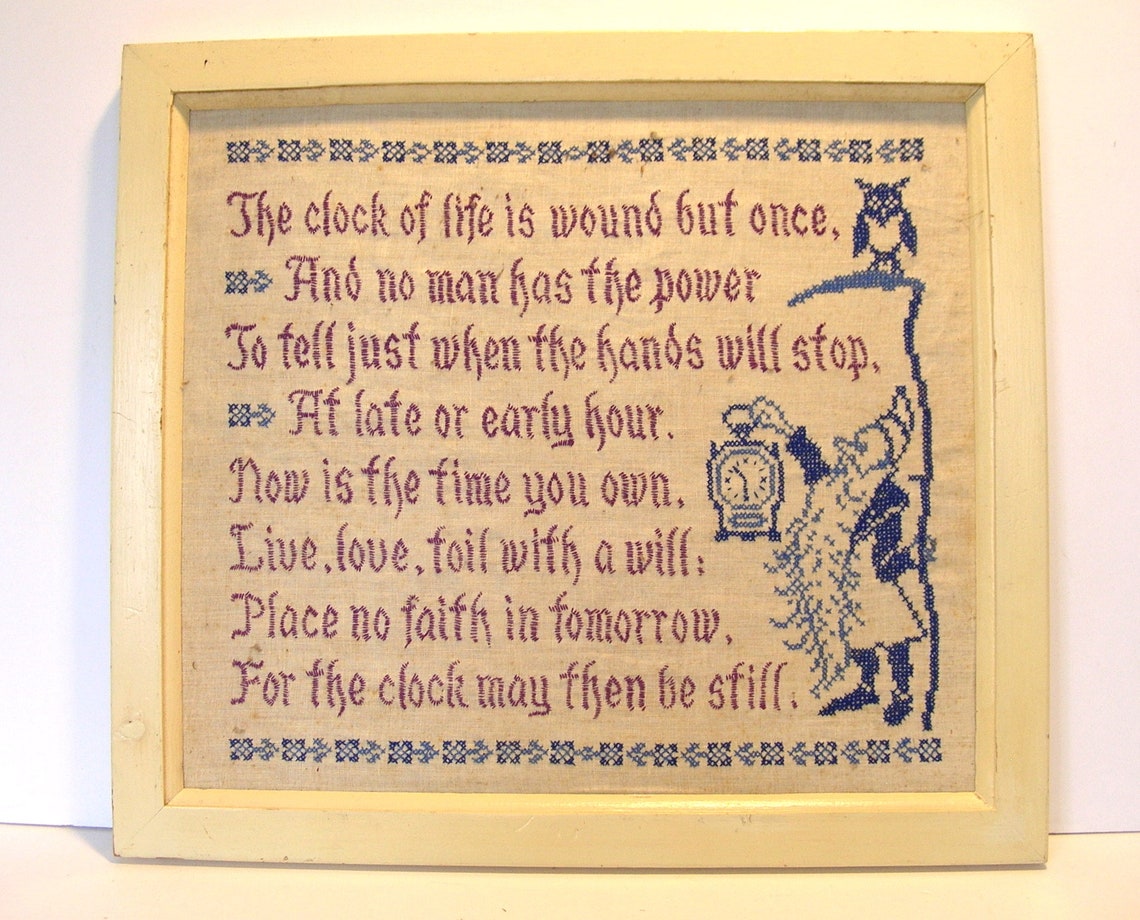 The clock of life is wound but once,
And no man has the power
To tell just when the hands will stop,
At late or early hour.
Now is the time you own.
Live, love, toil with a will:
Place no faith in tomorrow,
For the clock may then be still.